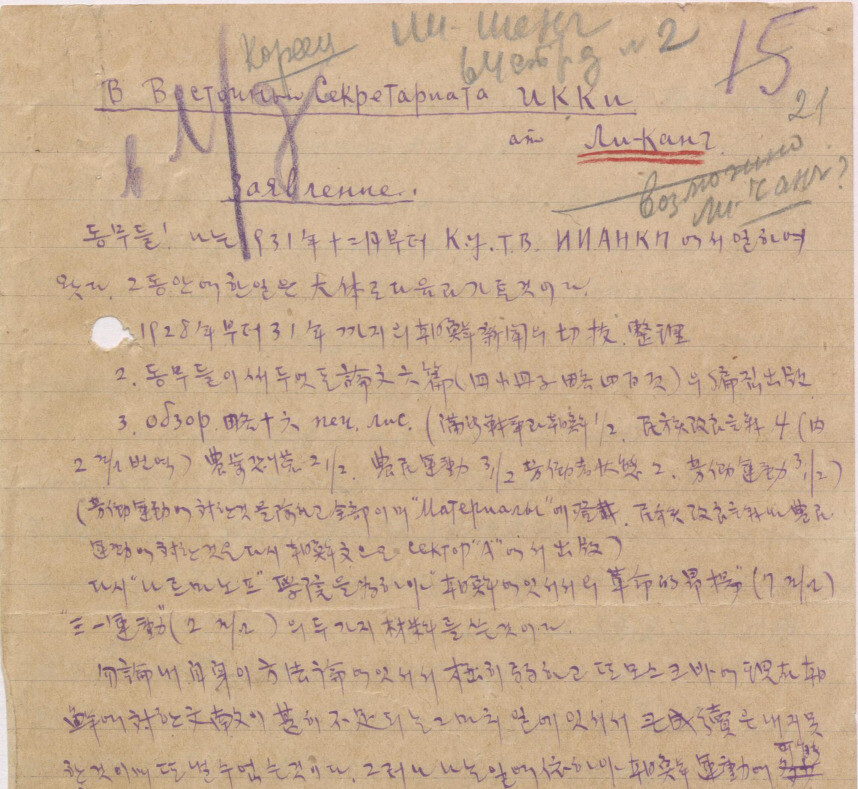 Кореец
Ли-Шенг
N 2
15
В Восточный Секретариата ИККИ
21
от Ли-Канг.
возможно
Ли-Чанг?
Заявление.
동무들! 나는 1931年 十二月부터 К.У.Т.В. НИАНКП에서 일하여
왓다. 그동안에 한 일은 大体로 다음과 가틀 것이다.
1928年부터 31年까지의 朝鮮新聞의 切抜, 整理
2. 동무들이 써 두엇든 論文 六篇(四十冊子 略 四百頁)의 編輯出版
3. Обзор 略十六 печ. лис. (満洲戦争과 朝鮮 1/2. 民族改良主義 4 (内
2 번역) 農業恐慌 2 1/2. 農民運動 3 1/2 労働者状態 2. 労働運動 3 1/2)
(労働運動에 対한 것을 除하고 全部 이미 "Материалы"에 登載. 民族改良主義와 農民
運動에 対한 것은 다시 朝鮮文으로 сектор "А"에서 出版)
다시 学院을 為하야 "朝鮮에 잇서서의 革命的 昂揚" (7
"三一運動" (2 의 두 가지 材料를 쓴 것이다.
勿論 내 自身이 方法論에 잇서서 極히 弱하고 또 모스크바에 現在 朝
鮮에 対한 文献이 甚히 不足되는 그만치 일에 잇서서 큰 成績은 내지 못
한 것이며 또 낼 수 업슨 것이다. 그러나 나는 일에 依하야 朝鮮運動에